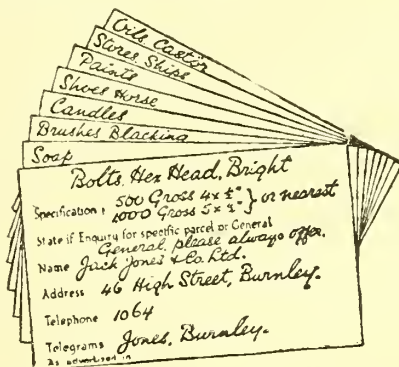 Oils Castor
Stores Ships
Paints
Shoes Horse
Candles
Brushes Blacking
Soap
Bolts, Hex Head, Bright
Specification: 500 Gross 4 x ½" } or nearest
1000 Gross 5 x ½" }
State if Enquiry for specific parcel or General
General, please always offer.
Name Jack Jones & Co. Ltd.
Address 46 High Street, Burnley.
Telephone 1064
Telegrams Jones, Burnley.
As advertised in